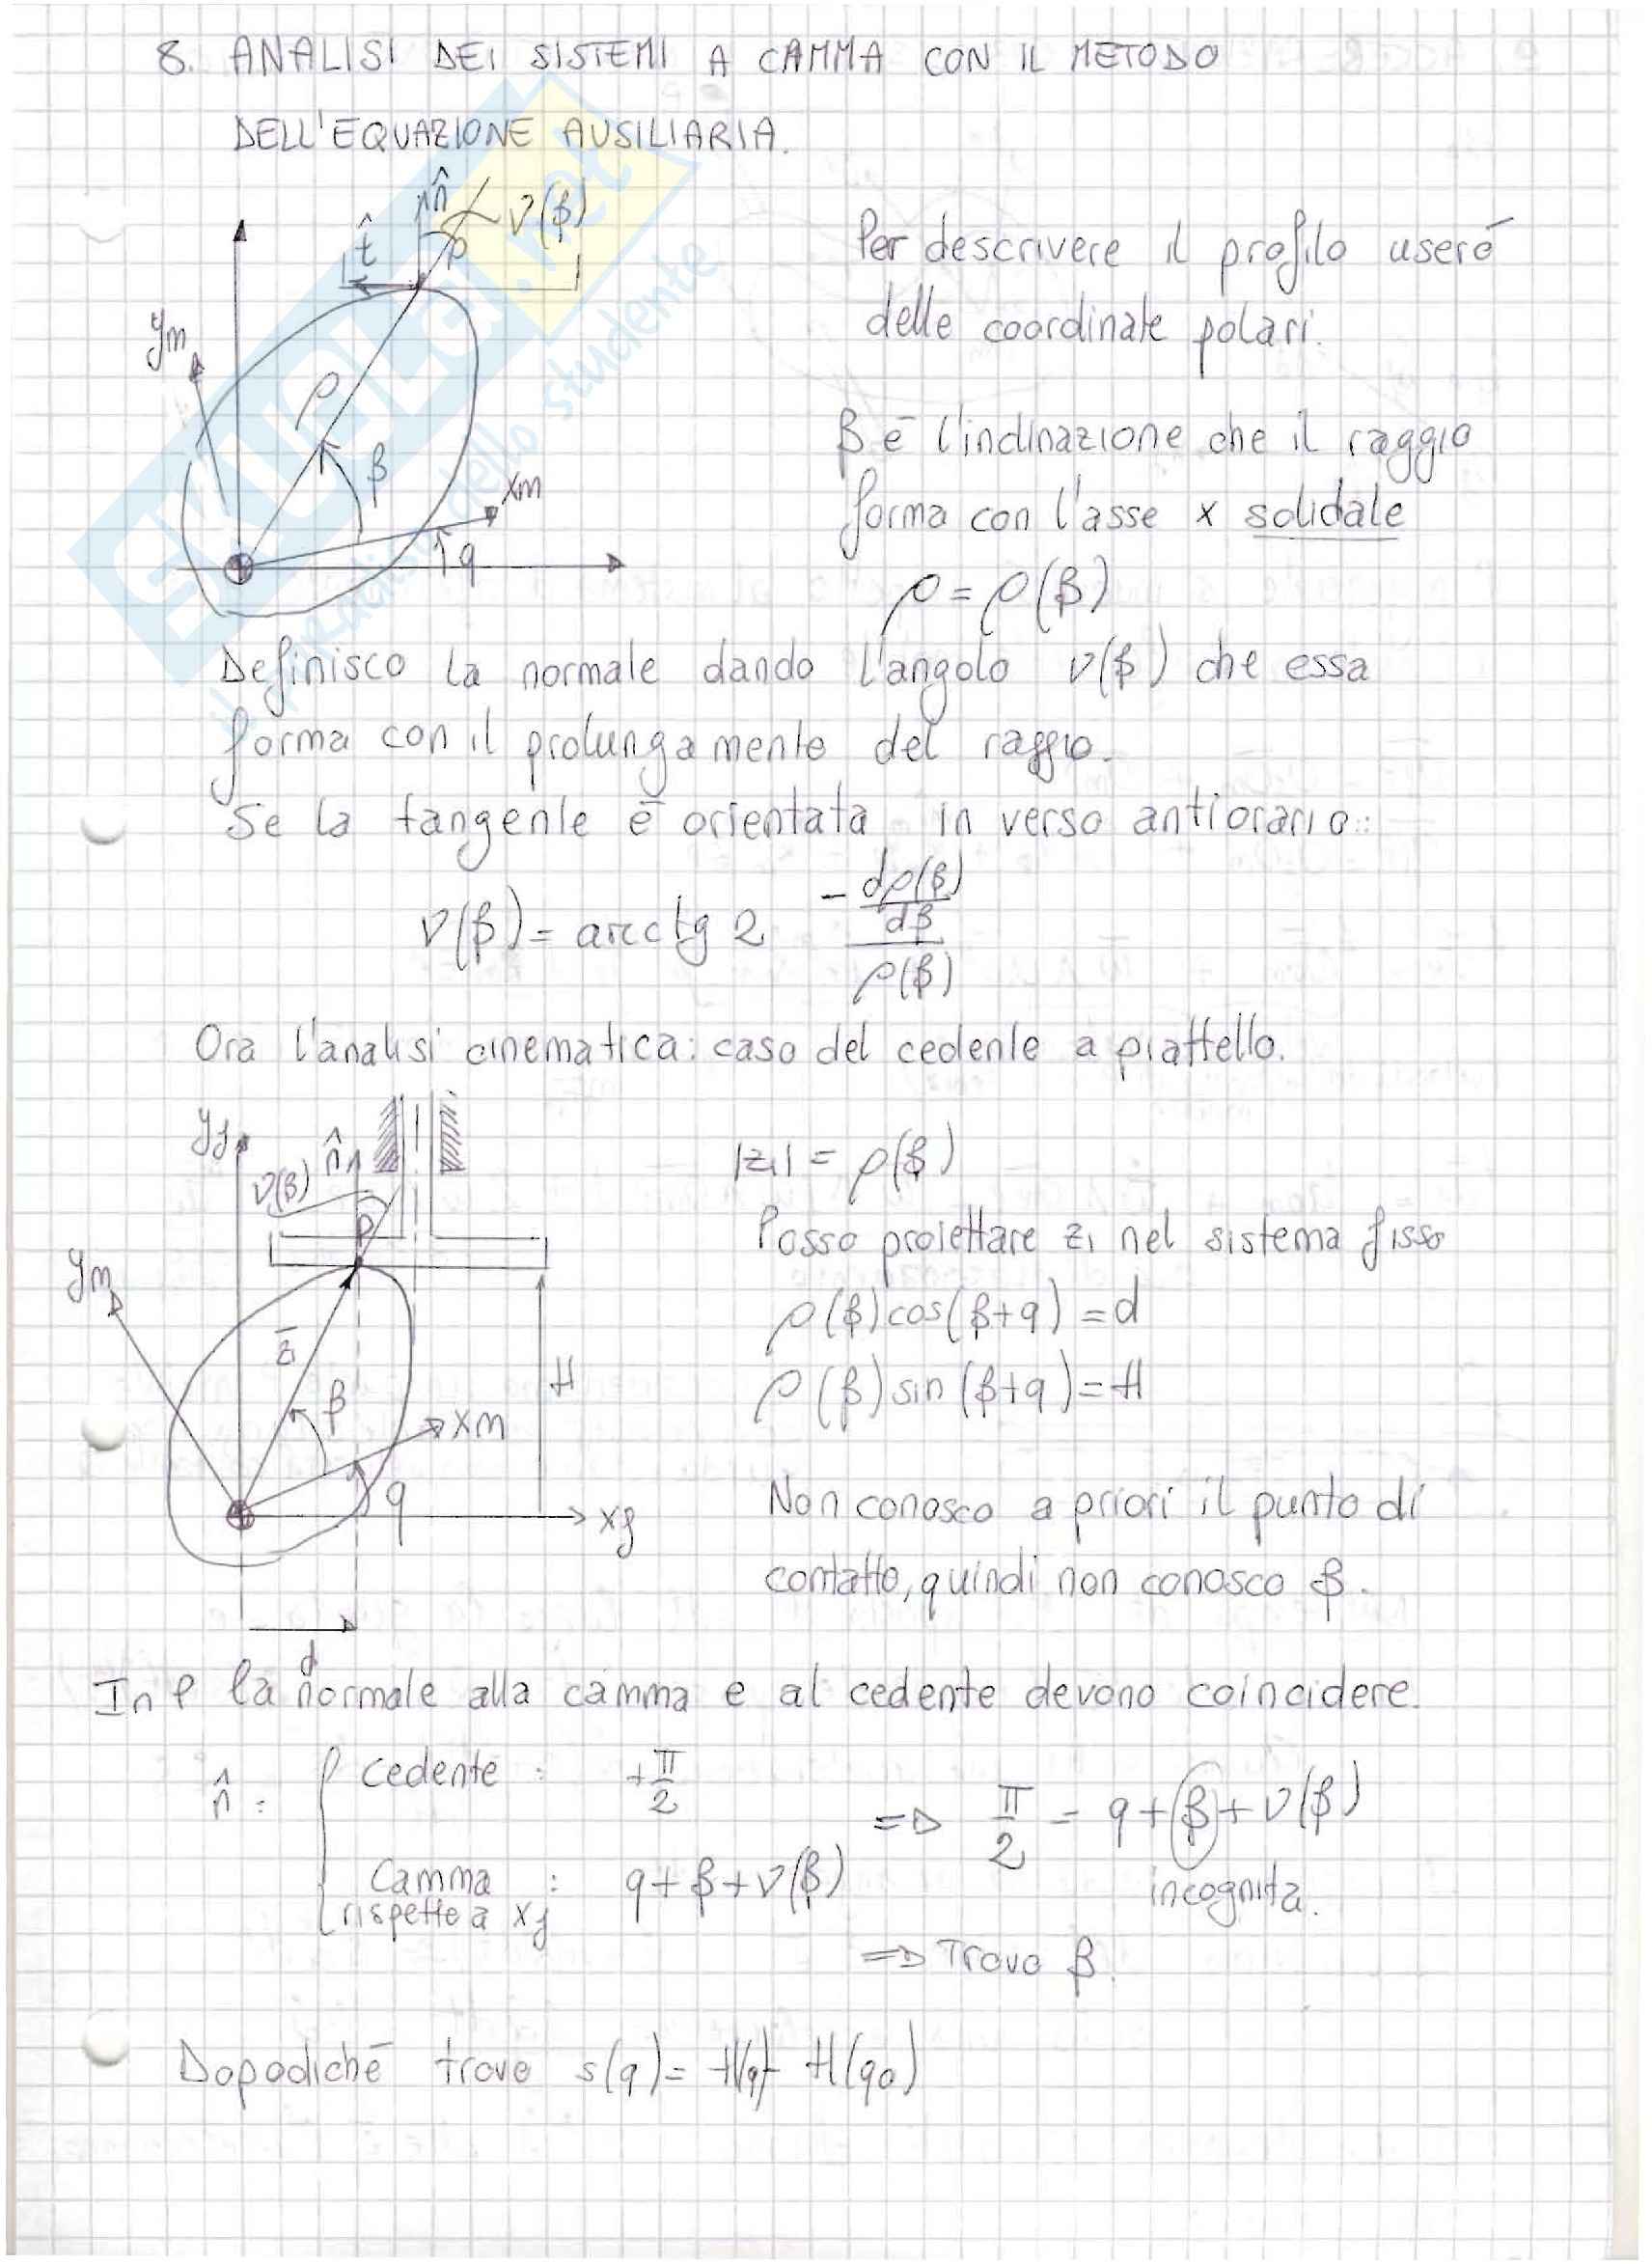 8. ANALISI DEI SISTEMI A CAMMA CON IL METODO
DELL'EQUAZIONE AUSILIARIA.
n̂
ν(β)
t̂
P
ym
ρ
β
xm
q
Per descrivere il profilo useró
delle coordinate polari.
β é l'inclinazione che il raggio
forma con l'asse x solidale
ρ = ρ(β)
Definisco la normale dando l'angolo ν(β) che essa
forma con il prolungamento del raggio.
Se la tangente é orientata in verso antiorario:
ν(β) = arctg 2 (- dρ(β)/dβ) / ρ(β)
Ora l'analisi cinematica: caso del cedente a piattello.
yf
n̂
ν(β)
P
ym
z̄1
β
xm
H
q
xf
d
|z1| = ρ(β)
Posso proiettare z1 nel sistema fisso
ρ(β)cos(β+q) = d
ρ(β)sin(β+q) = H
Non conosco a priori il punto di
contatto, quindi non conosco β.
In P la normale alla camma e al cedente devono coincidere.
n̂ : { cedente : +π/2
Camma : q+β+ν(β)
rispetto a xf
=> π/2 = q+β+ν(β)
incognita.
=> Trovo β.
Dopodiché trovo s(q) = H(q) - H(q0)
SKUOLA.net
il paradiso dello studente